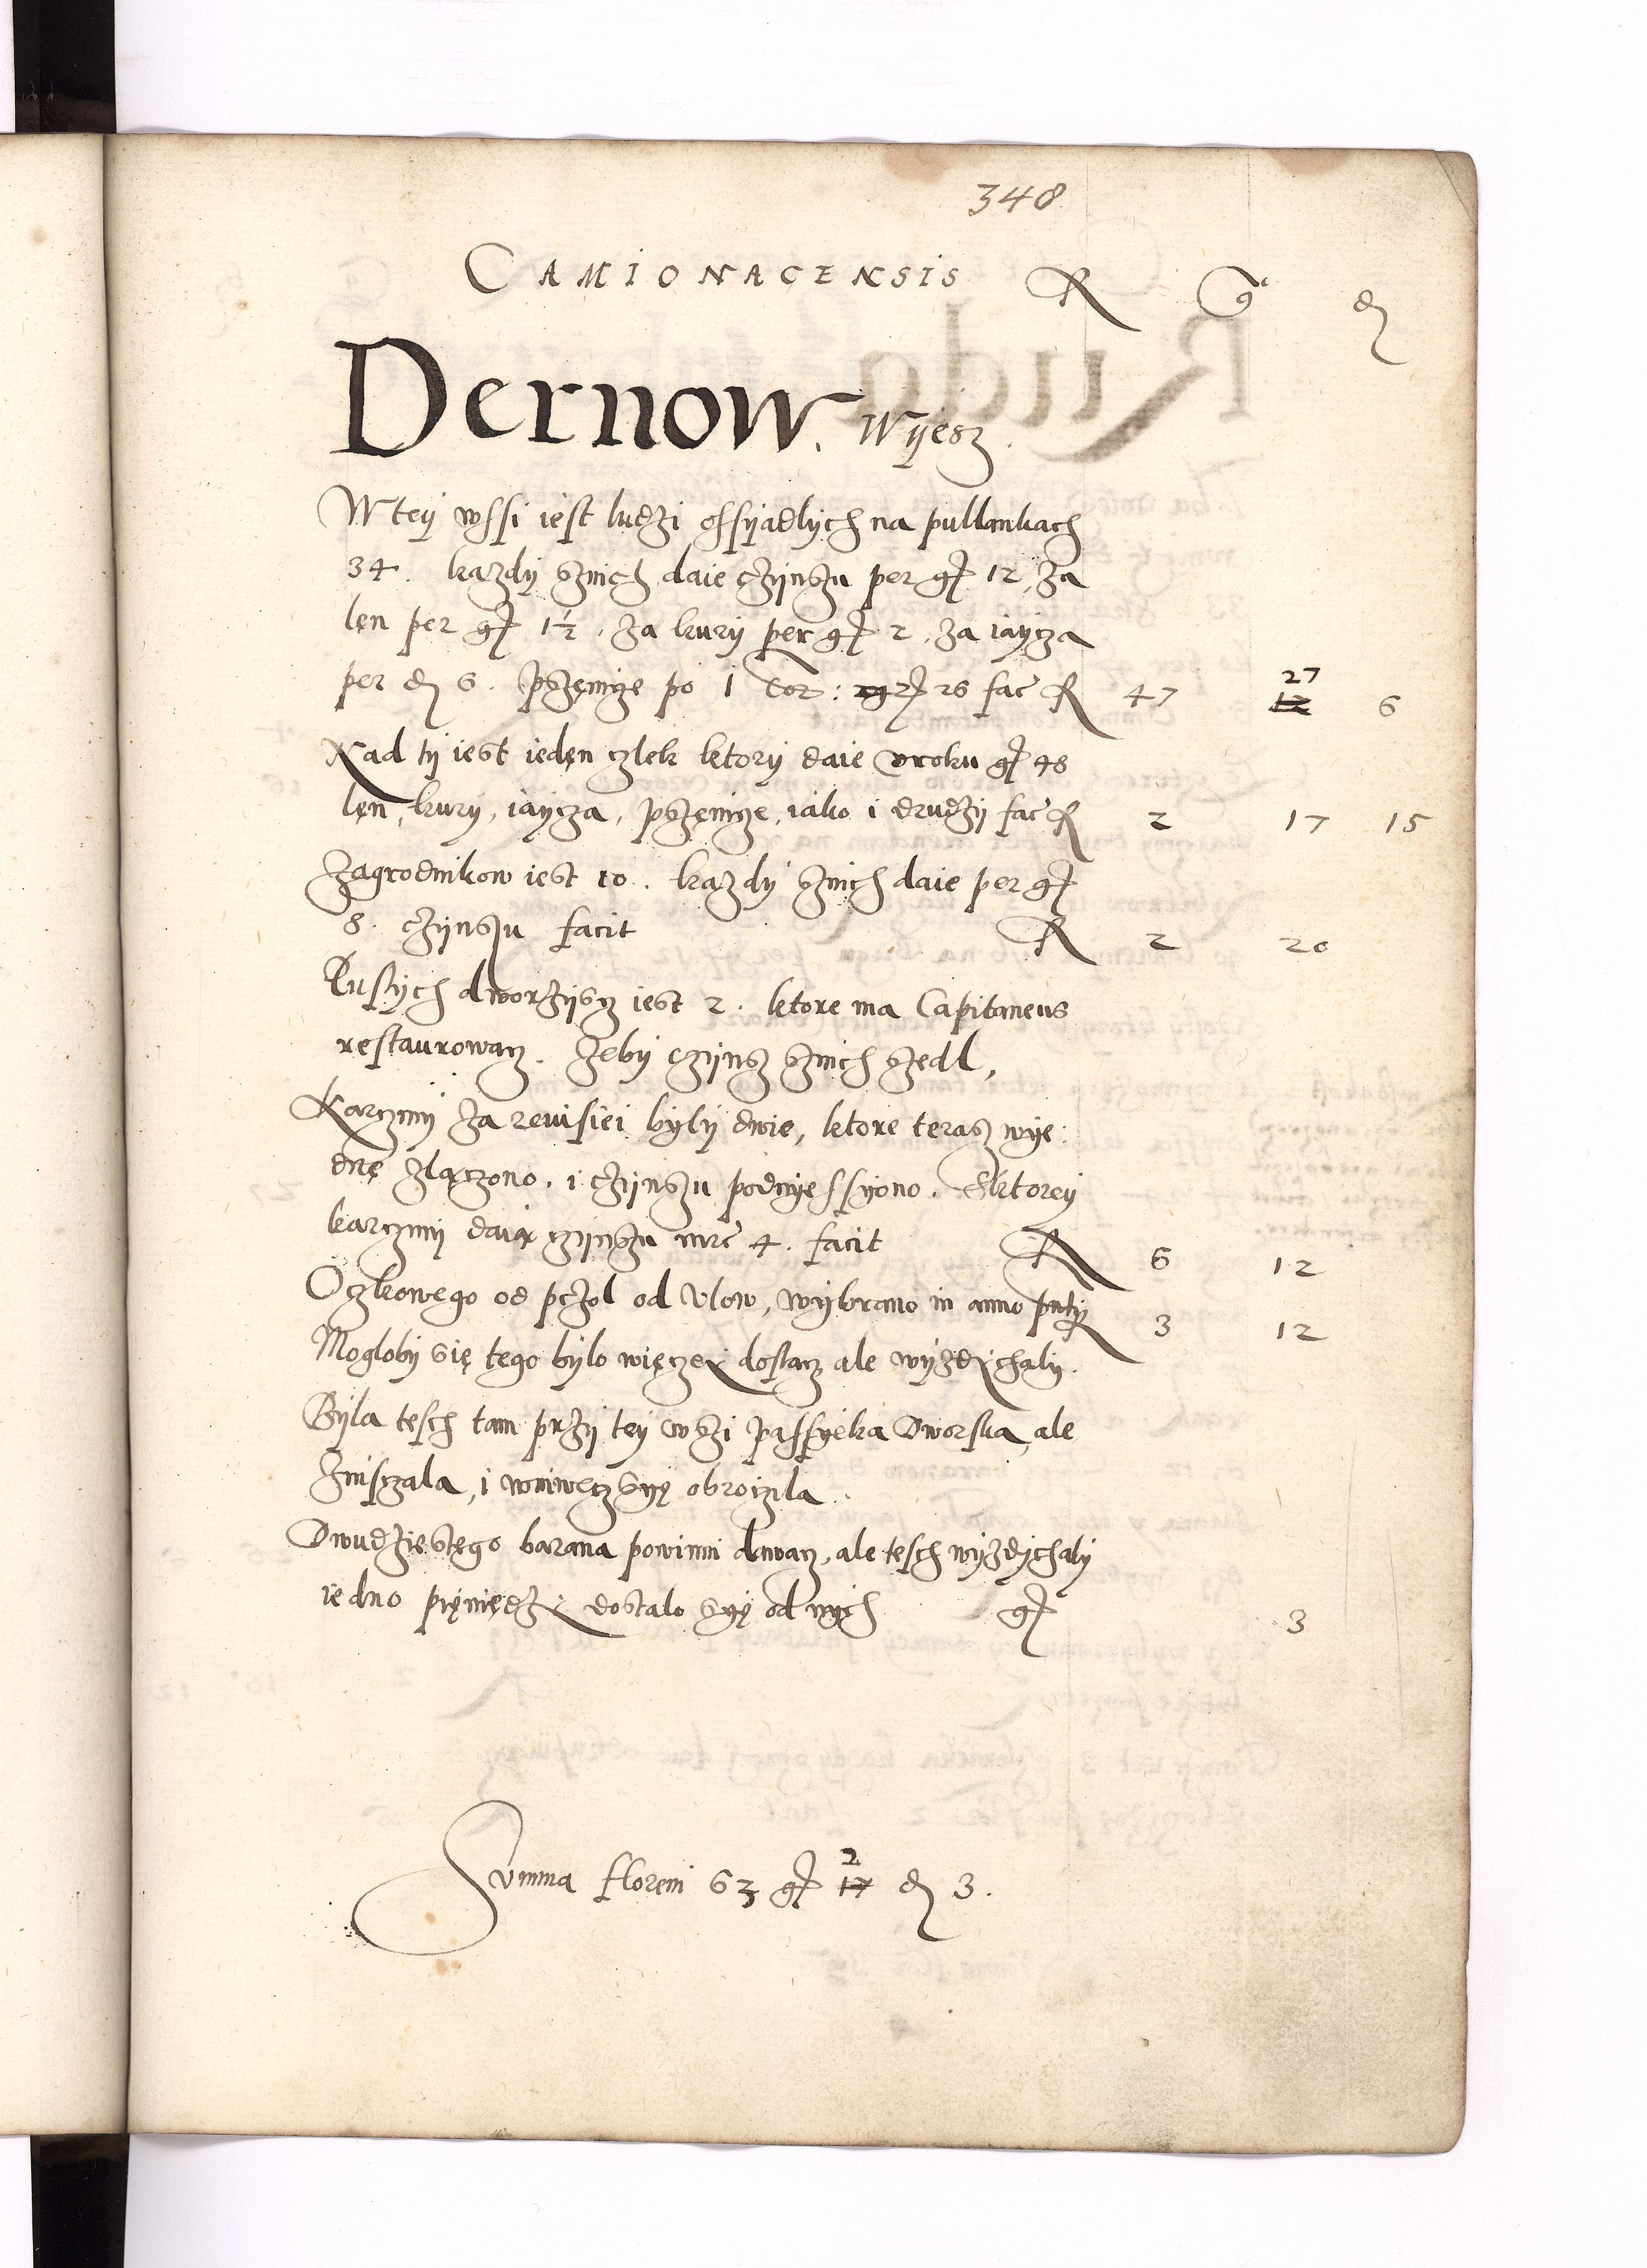 348
CAMIONACENSIS R g d
Dernow. Wyesz
W tey wssi iest ludzi ossyadlych na pullankach
34. kazdy sznich daie czynszu per g 12, za
len per g 1½, za kury per g 2, za iaycza
per d 6. pszenycze po 1 cor: g 26 fac R 47 27 6
Nad ty iest ieden czlek ktory daie vroku g 48
len, kury, iaycza, pszenicze, iako i drudzy fac R 2 17 15
Zagrodnikow iest 10. kazdy sznich daie per g
8. czynszu facit R 2 20
Pustych dworzysz iest 2. ktore ma Capitaneus
restaurowacz. Zeby czynsz sznich szedl,
Karczmy za reuisiei byly dwie, ktore terasz wye:
dnę zlączono, i czynszu podnyessyono. Sktorey
karczmy daią czynszu mrc 4. facit R 6 12
Oczkowego od pczol od Vlow, wybrano in anno pnti R 3 12
Mogloby się tego bylo więczey dostacz ale wyzdychaly.
Byla tesch tam przy tey wszi passyeka Dworska, ale
znisczala, i wniwecz syę obroczila.
Dwudziestego barana powinni dawacz, ale tesch wyzdychaly
iedno pięniędzy dostalo syę od nych g 3
Summa floreni 63 g 2 d 3.